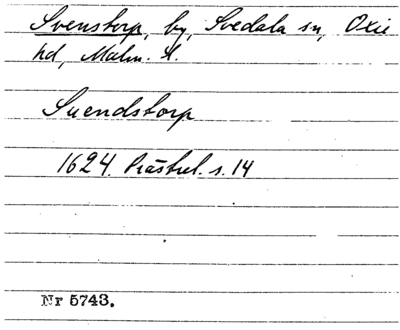 Svenstorp, by, Svedala sn, Oxie
hd, Malm. l.
Suendstorp
1624. Prästrel. s. 14
Nr 5743.